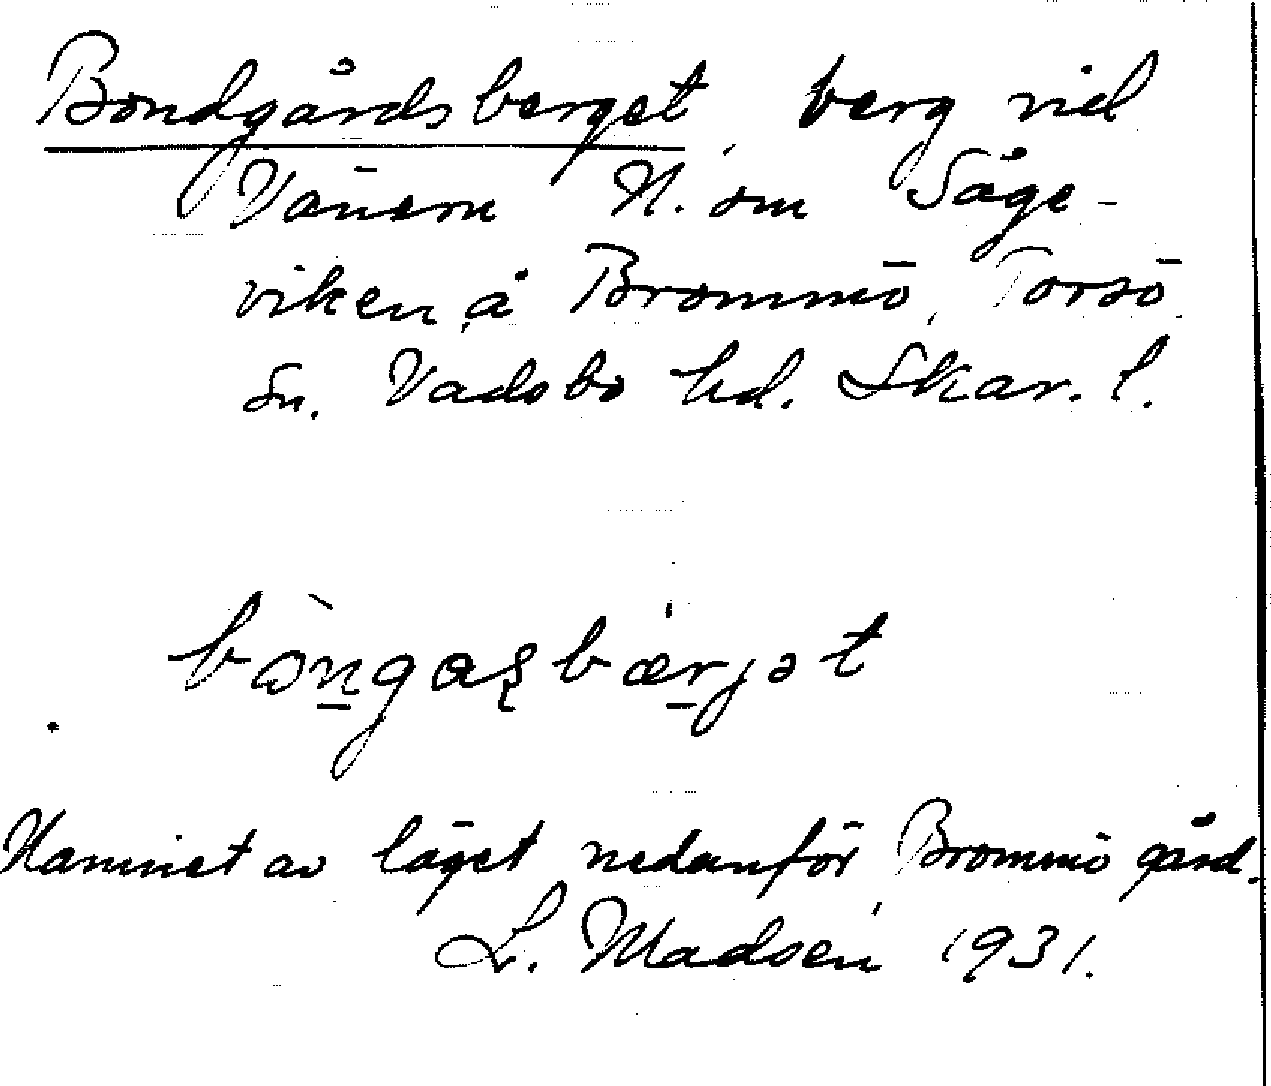 Bondgårdsberget, berg vid
Vänern N. om Såge-
viken å Brommö, Torsö
sn. Vadsbo hd. Skar. l.
bòn̲gaʂbæ̍r̲jət
Namnet av läget nedanför Brommö gård.
L. Madsén 1931.